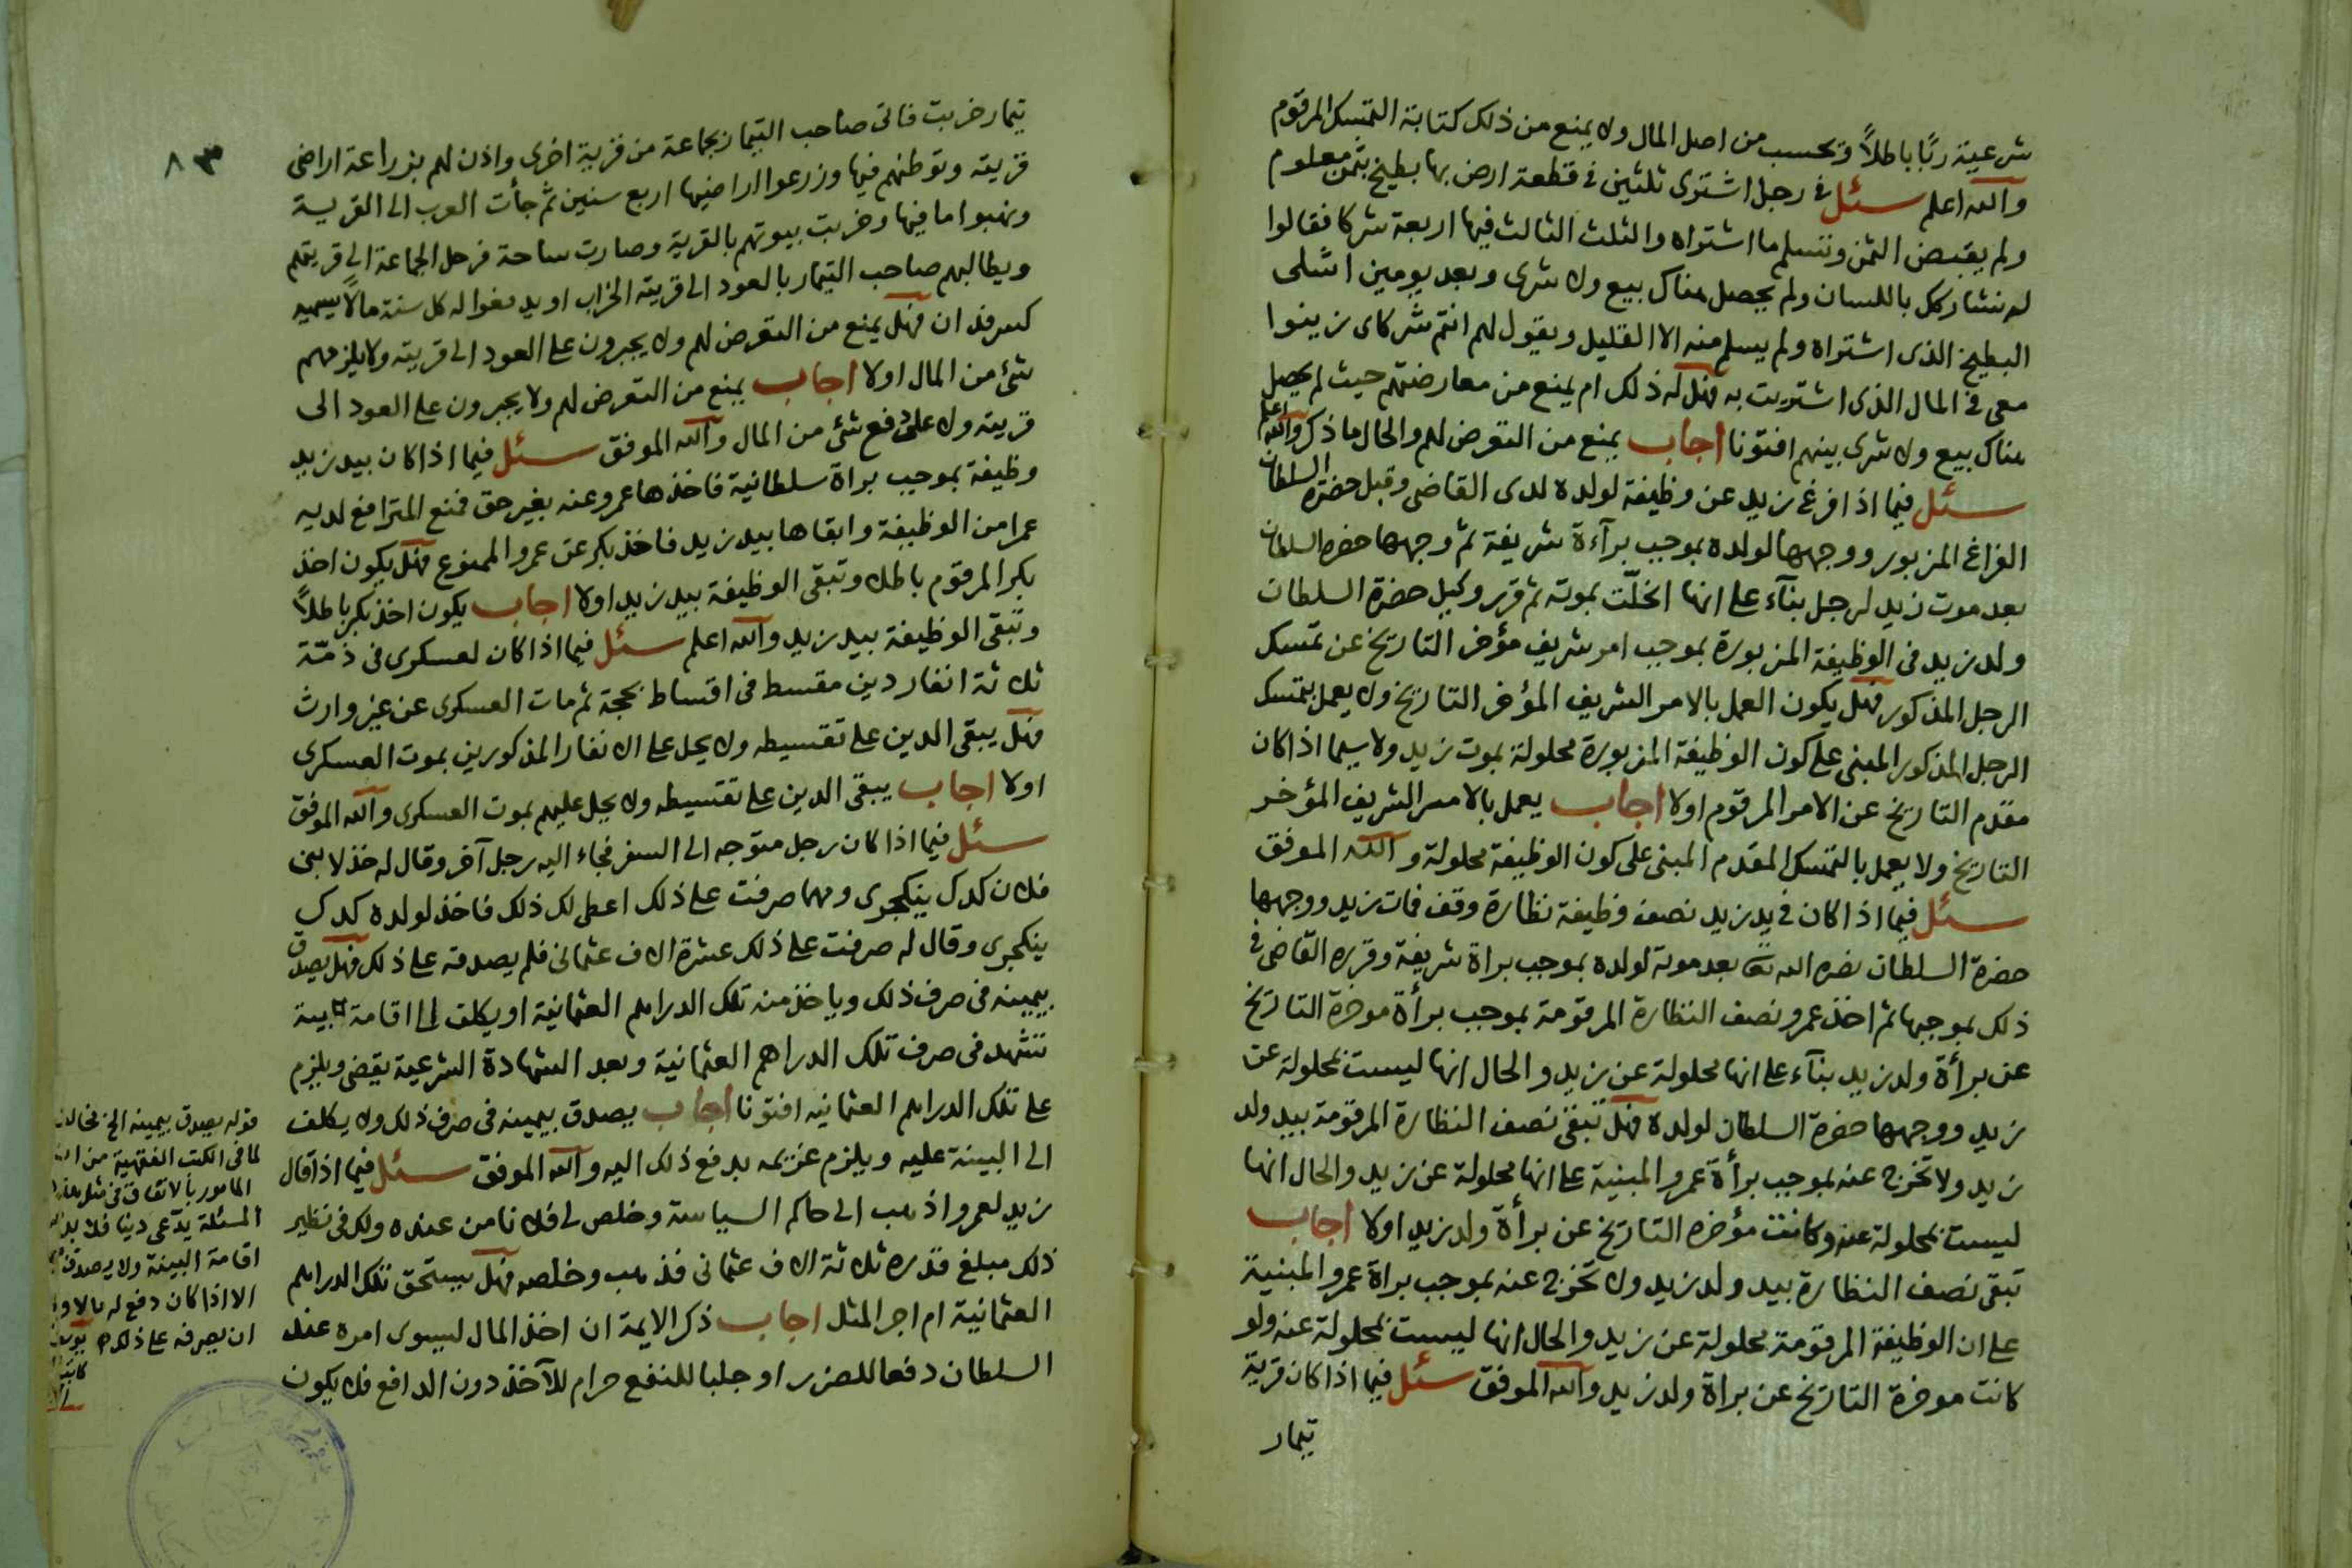 شرعية ربًا باطلًا وتحسب من اصل المال ولا يمنع من ذلك كتابة التمسك المرقوم
والله اعلم سئل في رجل اشترى ثلثين في قطعة ارض بها بطيخ بثمن معلوم
ولم يقبض الثمن وتسلم ما اشتراه والثلث الثالث فيها اربعة شركا فقالوا
له نشاركك باللسان ولم يحصل هناك بيع ولا شرى وبعد يومين اشلى
البطيخ الذى اشتراه ولم يسلم منه الا القليل ويقول لهم انتم شركاى زينوا
معى في المال الذى اشتريت به فهل له ذلك ام يمنع من معارضتهم حيث لم يحصل
هناك بيع ولا شرى بينهم افتونا اجاب يمنع من التعرض لهم والحال ما ذكر والله اعلم
سئل فيما اذا فرغ زيد عن وظيفة لولده لدى القاضى وقبل حضرة السلطان
الفراغ المزبور ووجهها لولده بموجب برآءة شريفة ثم وجهها حضرة السلطان
بعد موت زيد لرجل بنآء على انها انحلّت بموته ثم قرر وكيل حضرة السلطان
ولد زيد فى الوظيفة المزبورة بموجب امر شريف مؤخر التاريخ عن تمسك
الرجل المذكور فهل يكون العمل بالامر الشريف المؤخر التاريخ ولا يعمل بتمسك
الرجل المذكور المبنى على كون الوظيفة المزبورة محلولة بموت زيد ولاسيما اذا كان
مقدم التاريخ عن الامر المرقوم اولا اجاب يعمل بالامر الشريف المؤخر
التاريخ ولا يعمل بالتمسك المقدم المبنى على كون الوظيفة محلولة والله الموفق
سئل فيما اذا كان في يد زيد نصف وظيفة نظارة وقف فمات زيد ووجهها
حضرة السلطان نصره الله تعا بعد موته لولده بموجب براة شريفة وقرره القاضى في
ذلك بموجبها ثم اخذ عمرو نصف النظارة المرقومة بموجب برأة موخرة التاريخ
عن برأة ولد زيد بنآء على انها محلولة عن زيد والحال انها ليست بمحلولة عن
زيد ووجهها حضرة السلطان لولده فهل تبقى نصف النظارة المرقومة بيد ولد
زيد ولا تخرج عنه بموجب برأة عمرو المبنية على انها محلولة عن زيد والحال انها
ليست بمحلولة عنه وكانت مؤخره التاريخ عن برأة ولد زيد اولا اجاب
تبقى نصف النظارة بيد ولد زيد ولا تخرج عنه بموجب براة عمرو المبنية
على ان الوظيفة المرقومة محلولة عن زيد والحال انها ليست بمحلولة عنه ولو
كانت موخرة التاريخ عن براة ولد زيد والله الموفق سئل فيما اذا كان قرية
تيمار
٨٣
تيمار خربت فاتى صاحب التيمار بجماعة من قرية اخرى واذن لهم بزراعة اراضى
قريته وتوطنهم فيها وزرعوا اراضيها اربع سنين ثم جأت العرب الى القرية
ونهبوا ما فيها وخربت بيوتهم بالقرية وصارت ساحة فرحل الجماعة الى قريتهم
ويطالبهم صاحب التيمار بالعود الى قريته الخراب او يدفعوا له كل سنة مالًا يسميه
كسر فدان فهل يمنع من التعرض لهم ولا يجبرون على العود الى قريته ولا يلزمهم
شئ من المال اولا اجاب يمنع من التعرض لهم ولا يجبرون على العود الى
قريته ولا على دفع شئ من المال والله الموفق سئل فيما اذا كان بيد زيد
وظيفة بموجب براة سلطانية فاخذها عمرو عنه بغير حق فمنع المترافع لديه
عمرا من الوظيفة وابقاها بيد زيد فاخذ بكر عن عمرو الممنوع فهل يكون اخذ
بكر المرقوم باطلا وتبقى الوظيفة بيد زيد اولا اجاب يكون اخذ بكر باطلًا
وتبقى الوظيفة بيد زيد والله اعلم سئل فيما اذا كان لعسكرى فى ذمّة
ثلاثة انفار دين مقسط فى اقساط بحجة ثم مات العسكرى عن غير وارث
فهل يبقى الدين على تقسيطه ولا يحل على الانفار المذكورين بموت العسكرى
اولا اجاب يبقى الدين على تقسيطه ولا يحل عليهم بموت العسكرى والله الموفق
سئل فيما اذا كان رجل متوجه الى السفر فجاء اليه رجل آخر وقال له خذ لابنى
فلان كدك ينكجرى ومهما صرفت على ذلك اعطى لك ذلك فاخذ لولده كدك
ينكجرى وقال له صرفت على ذلك عشرة الاف عثمانى فلم يصدقه على ذلك فهل يصدق
بيمينه فى صرف ذلك وياخذ منه تلك الدراهم العثمانية او يكلف الى اقامة بينة
تشهد فى صرف تلك الدراهم العثمانية وبعد الشهادة الشرعية يقضى ويلزم
على تلك الدراهم العثمانيه افتونا اجاب يصدق بيمينه فى صرف ذلك ولا يكلف
الى البينة عليه ويلزم غريمه بدفع ذلك اليه والله الموفق سئل فيما اذا قال
زيد لعمرو اذهب الى حاكم السياسة وخلص لى فلانا من عنده ولك فى نظير
ذلك مبلغ قدره ثلاثة الاف عثمانى فذهب وخلصه فهل يستحق تلك الدراهم
العثمانية ام اجر المثل اجاب ذكر الايمة ان اخذ المال ليسوى امره عند
السلطان دفعا للضرر او جلبا للنفع حرام للآخذ دون الدافع فلا يكون
قوله يصدق بيمينه الخ مخالف
لما فى الكتب الفقهية من ان
المامور بالانفاق فى مثل هذه
المسئلة يدّعى دينا فلا بد
اقامة البينة ولا يصدق
الا اذا كان دفع له مالا
ان يصرفه على ذلك